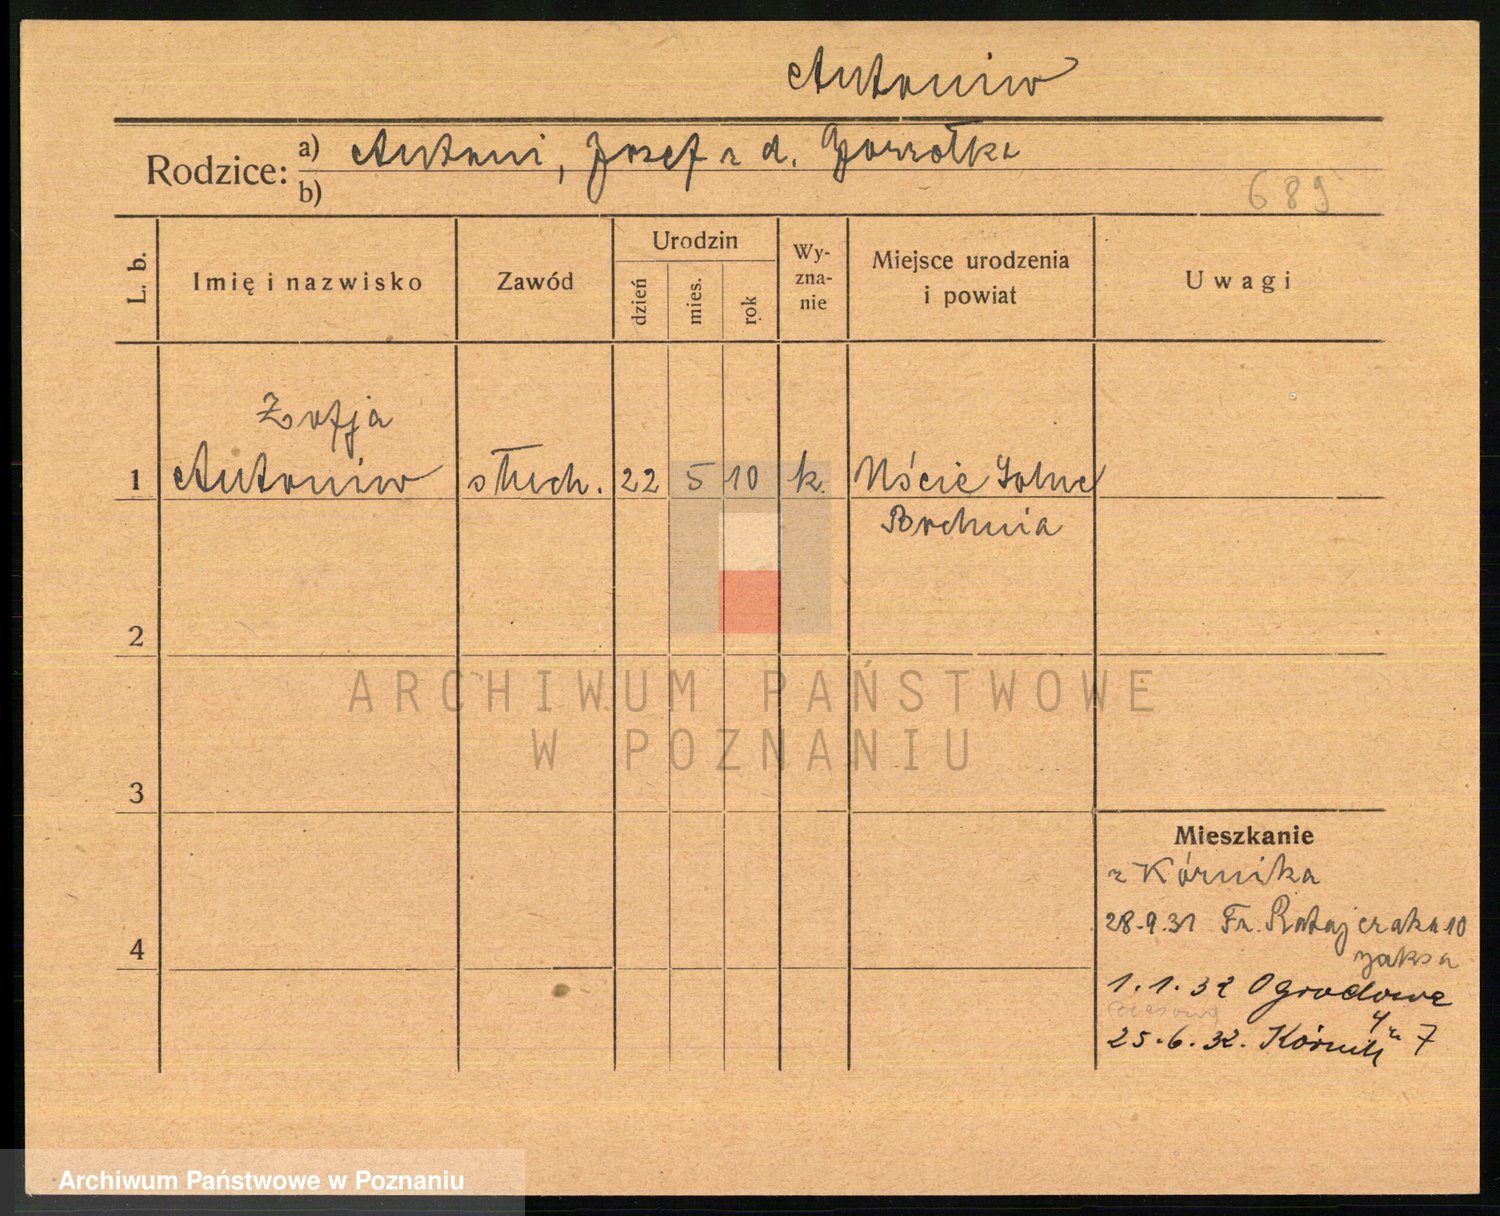 Antoniw
Rodzice:
a) Antoni, Jozef z d. Gorzołka
b)
689
L. b.
Imię i nazwisko
Zawód
Urodzin
dzień
mies.
rok
Wy-
zna-
nie
Miejsce urodzenia
i powiat
Uwagi
Zofja
1 Antoniw słuch. 22 5 10 k. Uście Solne
Bochnia
2
ARCHIWUM PAŃSTWOWE
W POZNANIU
3
Mieszkanie
z Kórnika
28.9.31 Fr. Ratajczaka 10
4
1.1.32 Ogrodowa
25.6.32. Kórnik 7
Archiwum Państwowe w Poznaniu